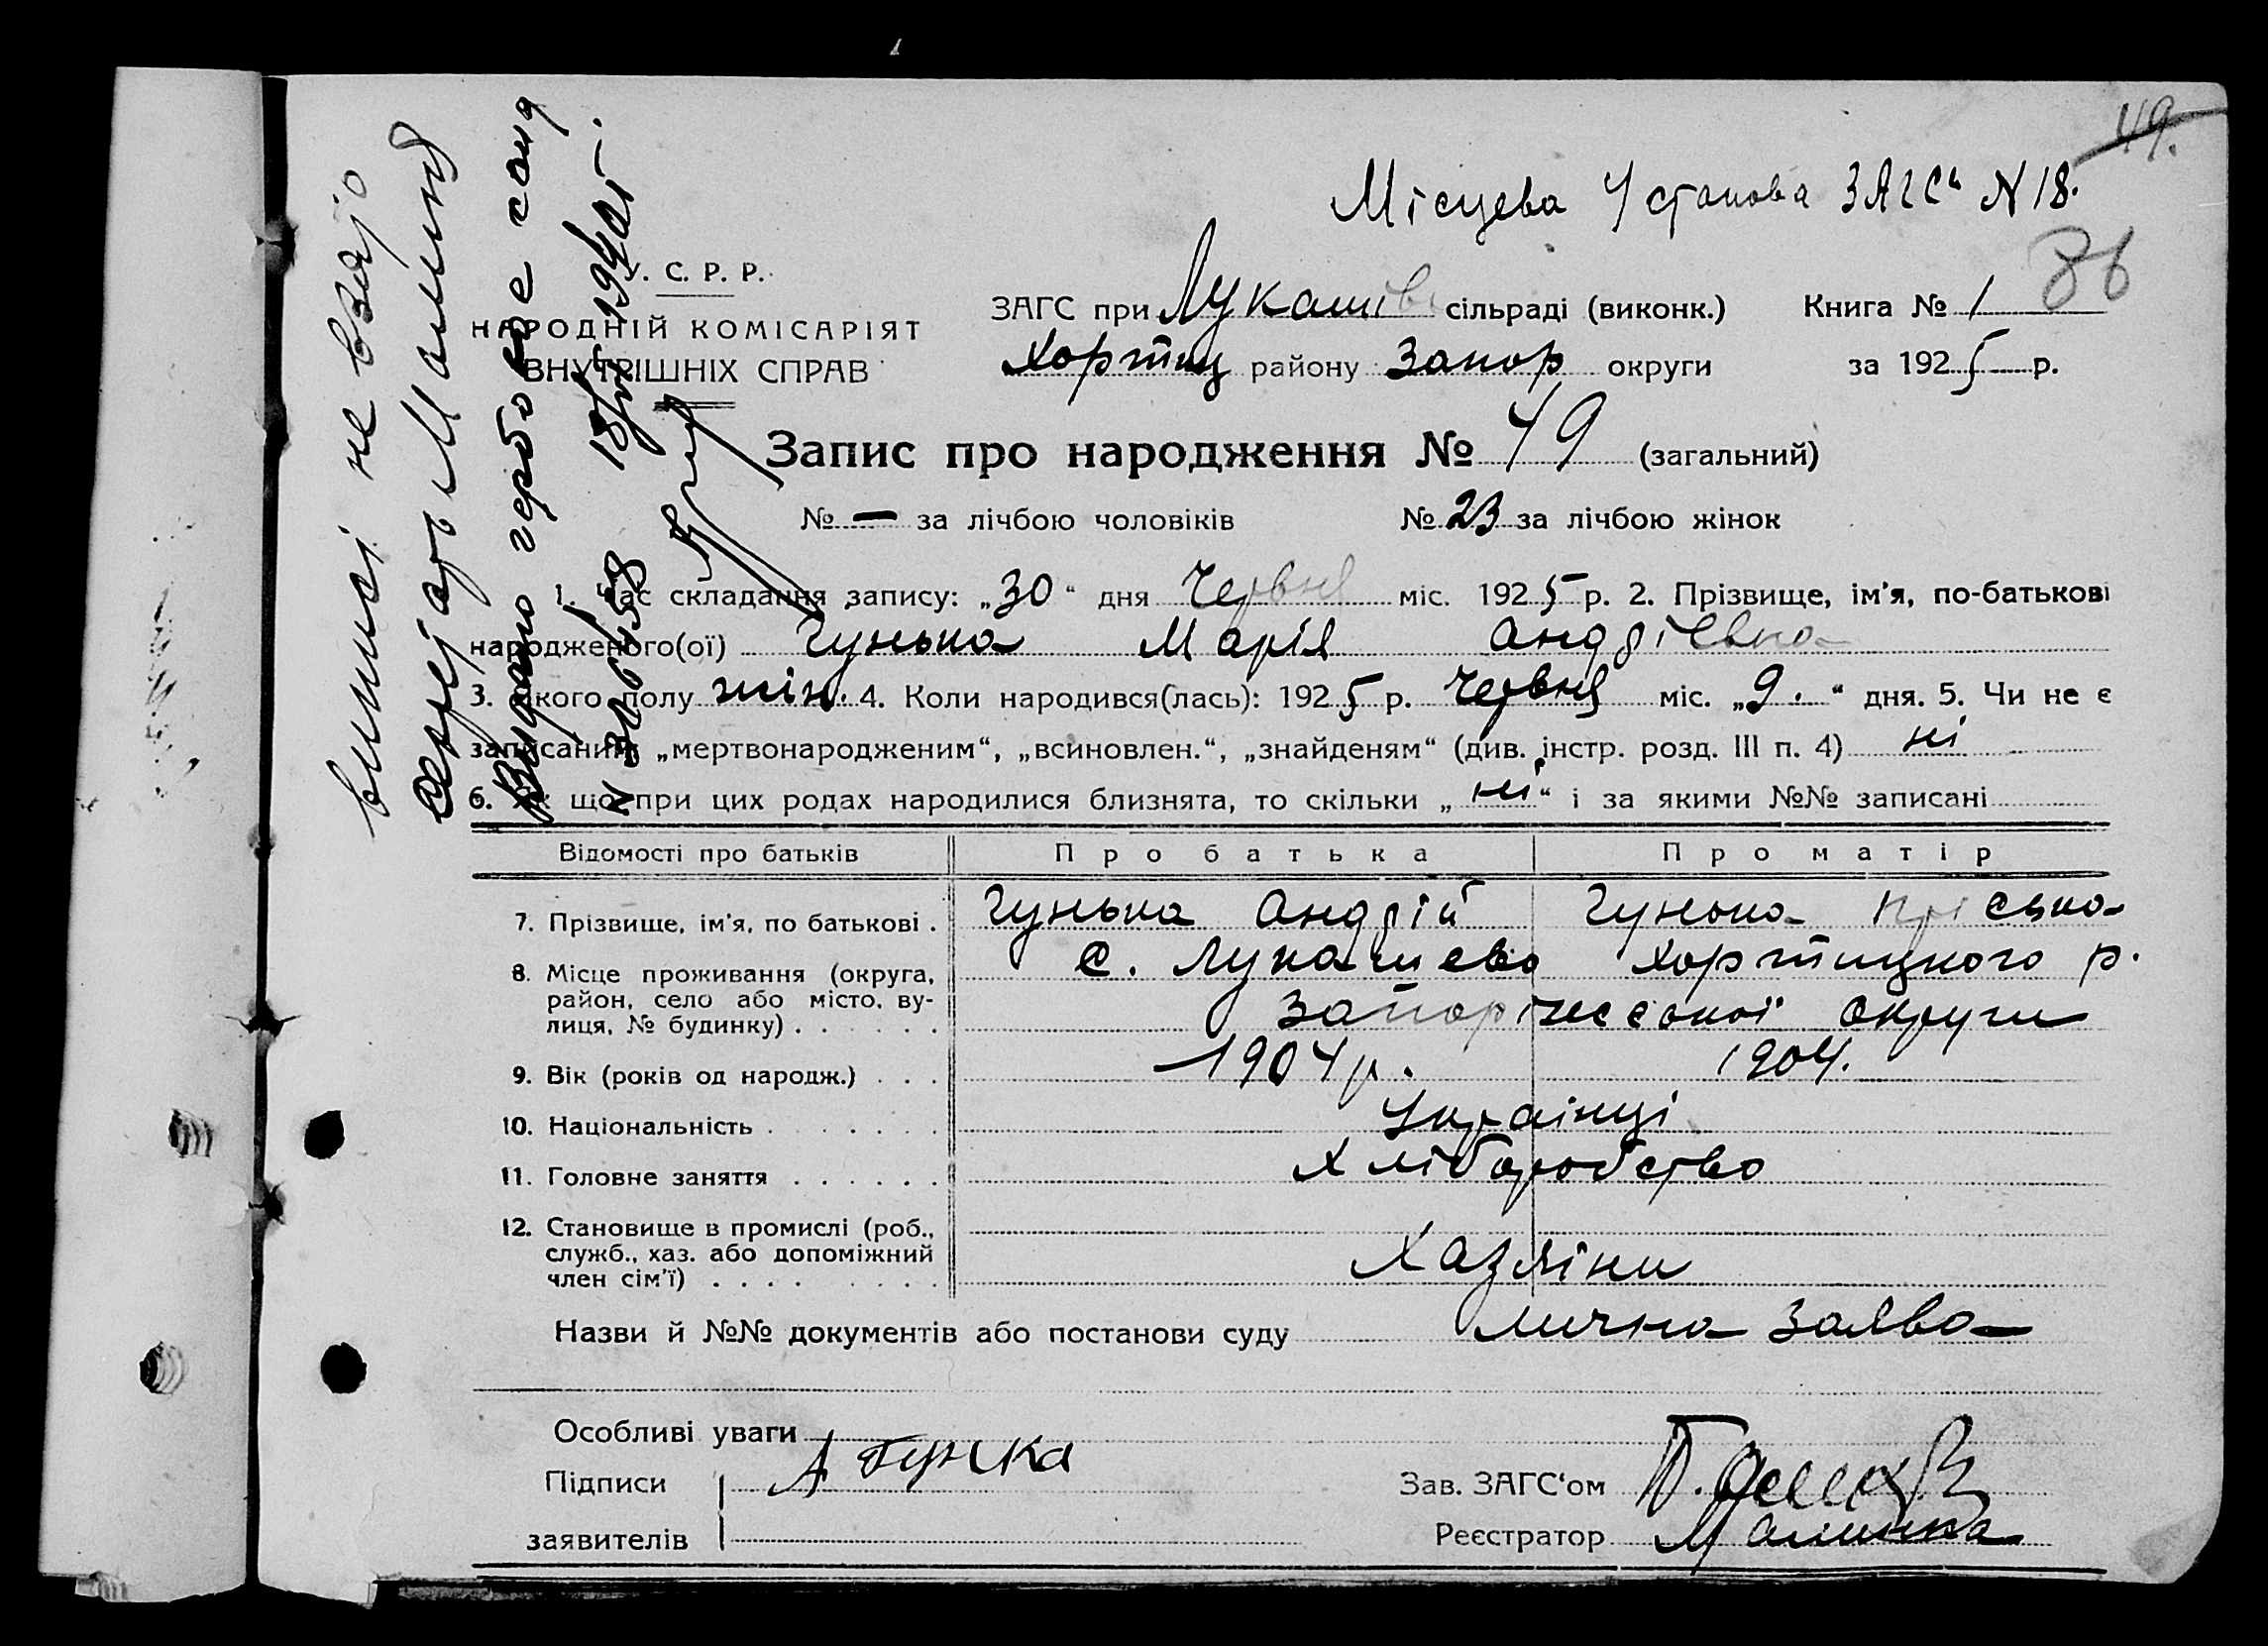 49.
Місцева Установа ЗАГСу N 18.
86
У. С. Р. Р.
НАРОДНІЙ КОМІСАРІЯТ
ВНУТРІШНІХ СПРАВ
ЗАГС при Лукашів сільраді (виконк.) Книга № 1
Хортиц району Запор округи за 1925 р.
Запис про народження № 49 (загальний)
№ — за лічбою чоловіків № 23 за лічбою жінок
1. Час складання запису: „30“ дня Червня міс. 1925 р. 2. Прізвище, ім'я, по-батькові
народженого(ої) Гунька Марія Андріевна
3. Якого полу жін. 4. Коли народився(лась): 1925 р. Червня міс. „9.“ дня. 5. Чи не є
записаним „мертвонародженим“, „всиновлен.“, „знайденям“ (див. інстр. розд. III п. 4) ні
6. Як що при цих родах народилися близнята, то скільки „ні“ і за якими №№ записані
Відомості про батьків Про батька Про матір
7. Прізвище, ім'я, по батькові . Гунька Андрій Гунька Пріська
8. Місце проживання (округа, с. Лукашево Хортицкого р.
район, село або місто, ву-
лиця, № будинку) . . . . . . Запоріжської округи
9. Вік (років од народж.) . . . 1904 р. 1904.
10. Національність . . . . . . Українці
11. Головне заняття . . . . . . Хліборобство
12. Становище в промислі (роб.,
служб., хаз. або допоміжний
член сім'ї) . . . . . . . . Хазяїни
Назви й №№ документів або постанови суду Лична заява
Особливі уваги
Підписи А Гунка Зав. ЗАГС'ом
заявителів Реєстратор Малинка
виписі не взято
Секретарь Малинка
Видано гербове
18/IV
N 306458